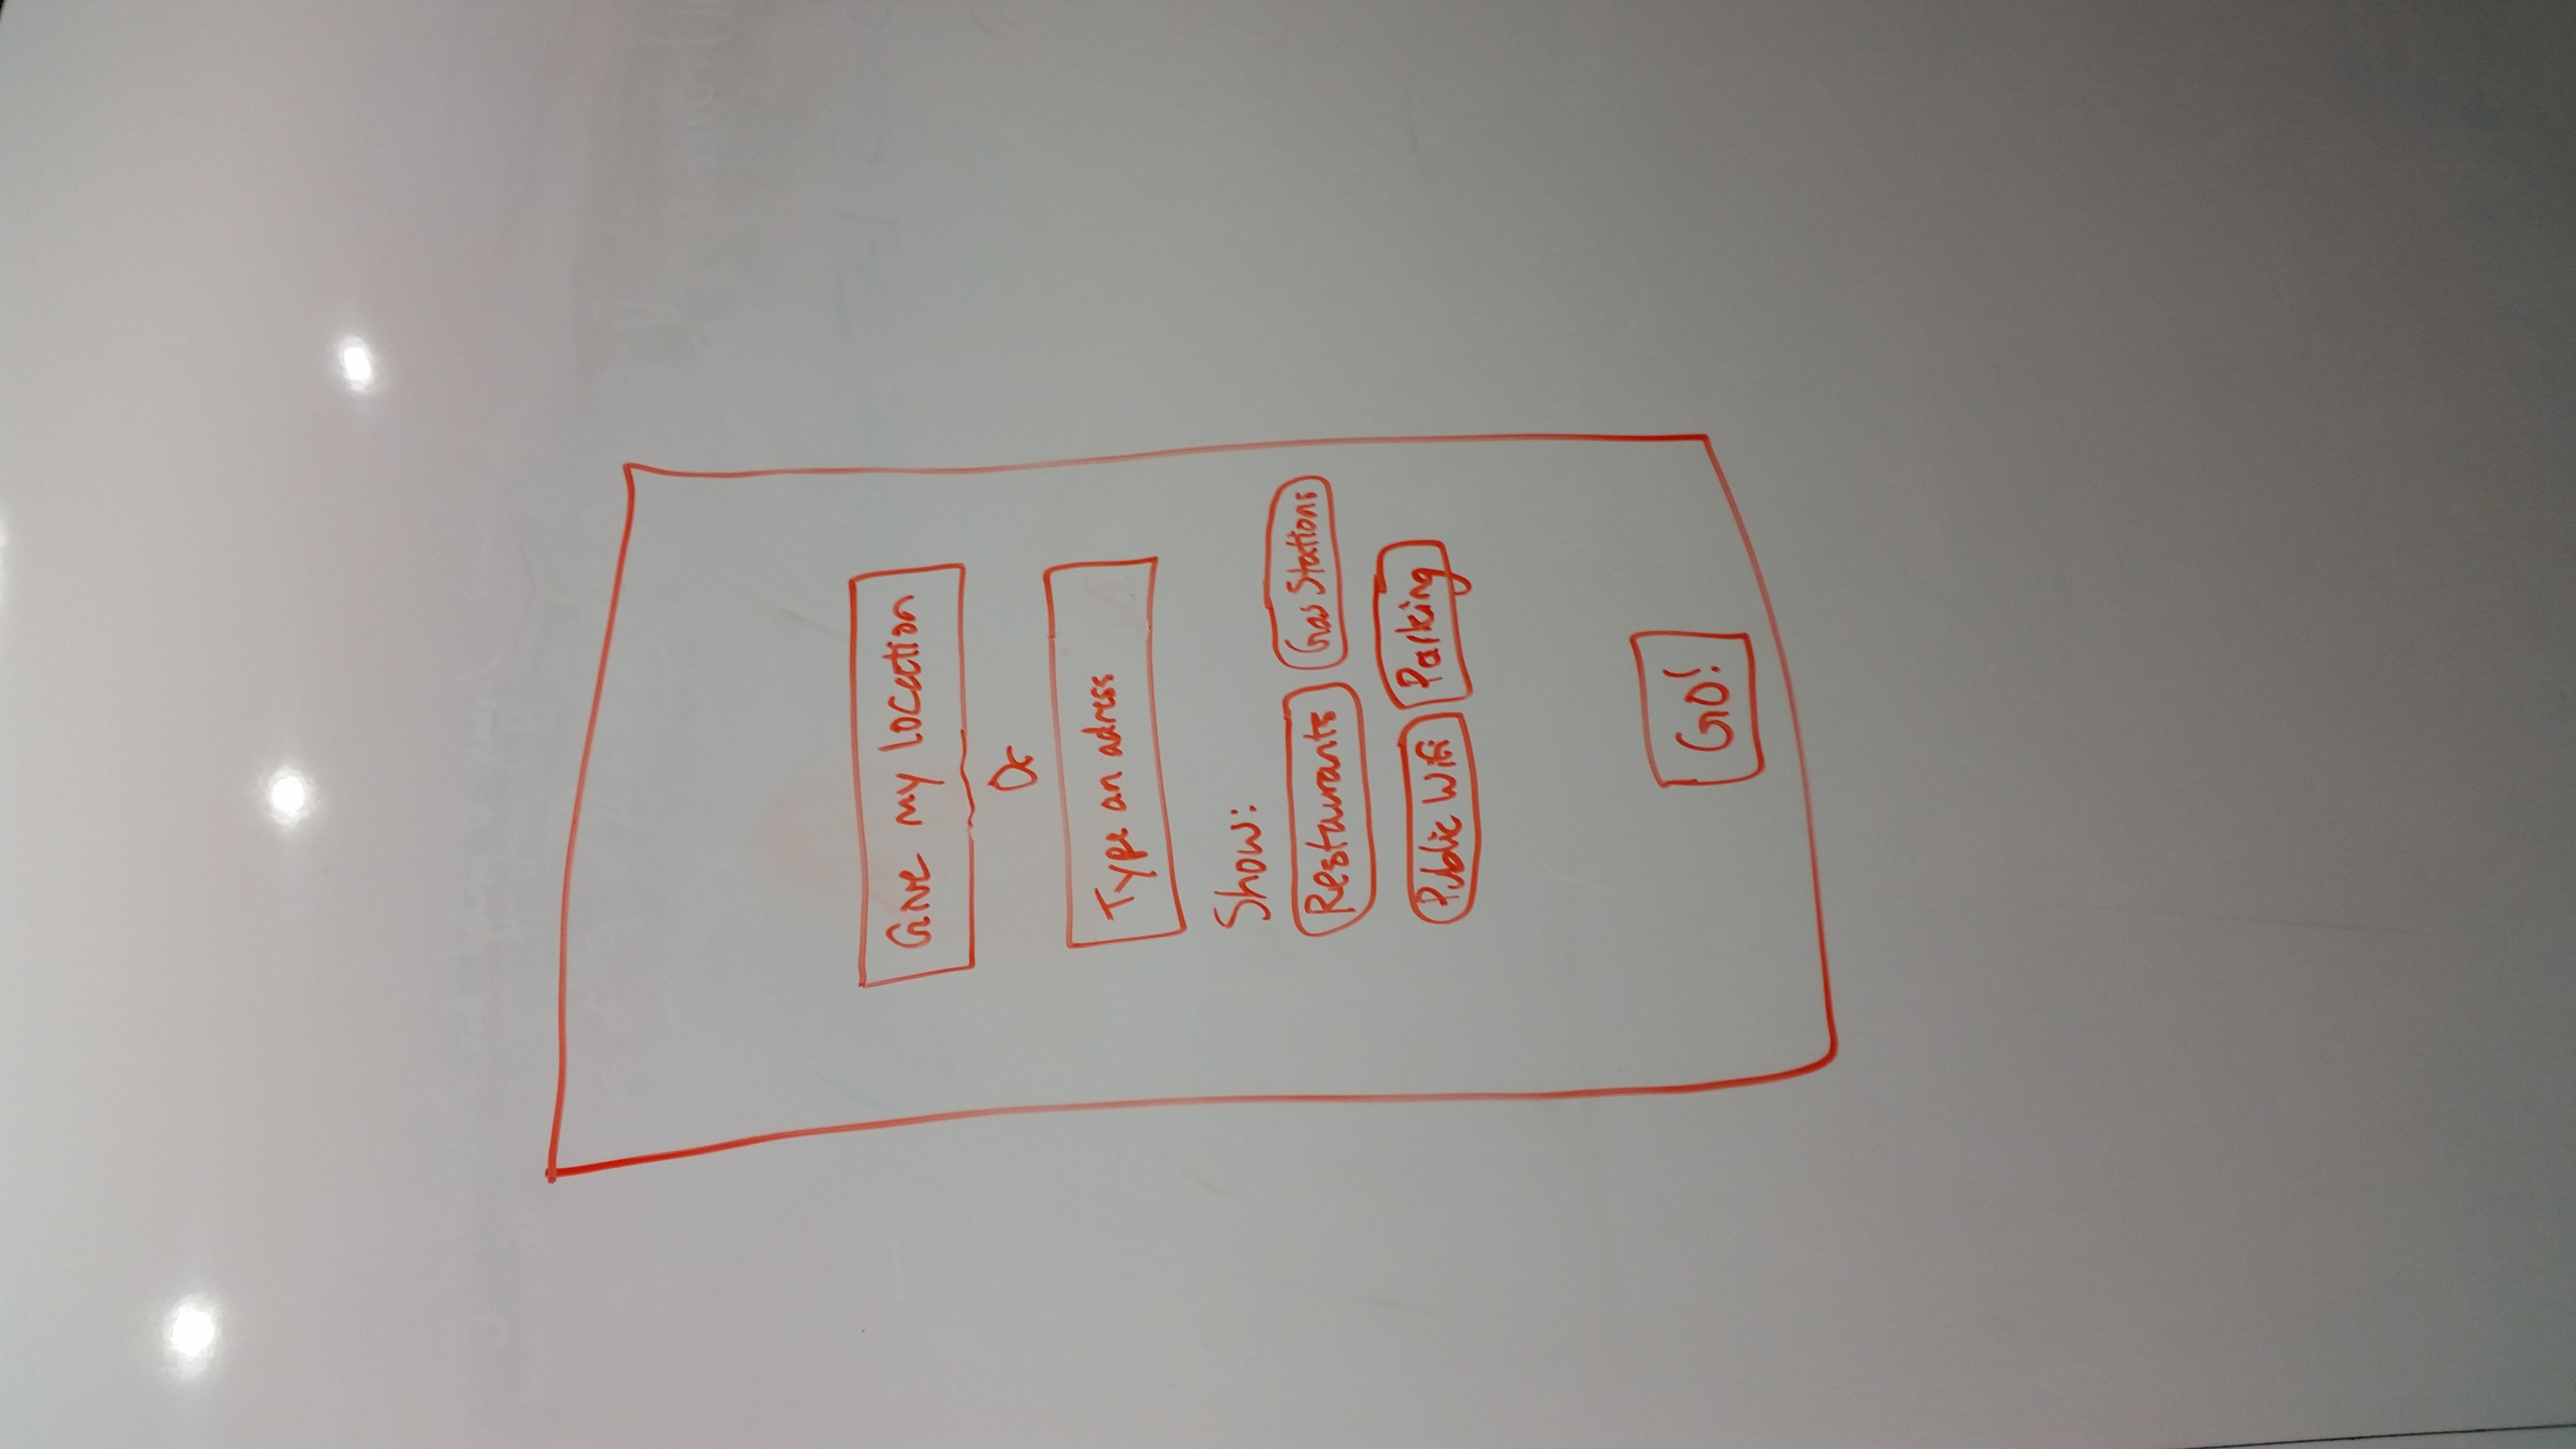 Give my location
Or
Type an adress
Show:
Restaurants Gas Stations
Public Wifi Parking
GO!